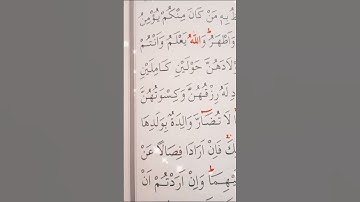 بِهٖ مَنْ كَانَ مِنْكُمْ يُؤْمِنُ
وَاَطْهَرُ وَاللّٰهُ يَعْلَمُ وَاَنْتُمْ
لَادَهُنَّ حَوْلَيْنِ كَامِلَيْنِ
لَهٗ رِزْقُهُنَّ وَكِسْوَتُهُنَّ
لَا تُضَٓارَّ وَالِدَةٌ بِوَلَدِهَا
فَاِنْ اَرَادَا فِصَالًا عَنْ
هِمَا وَاِنْ اَرَدْتُمْ اَنْ